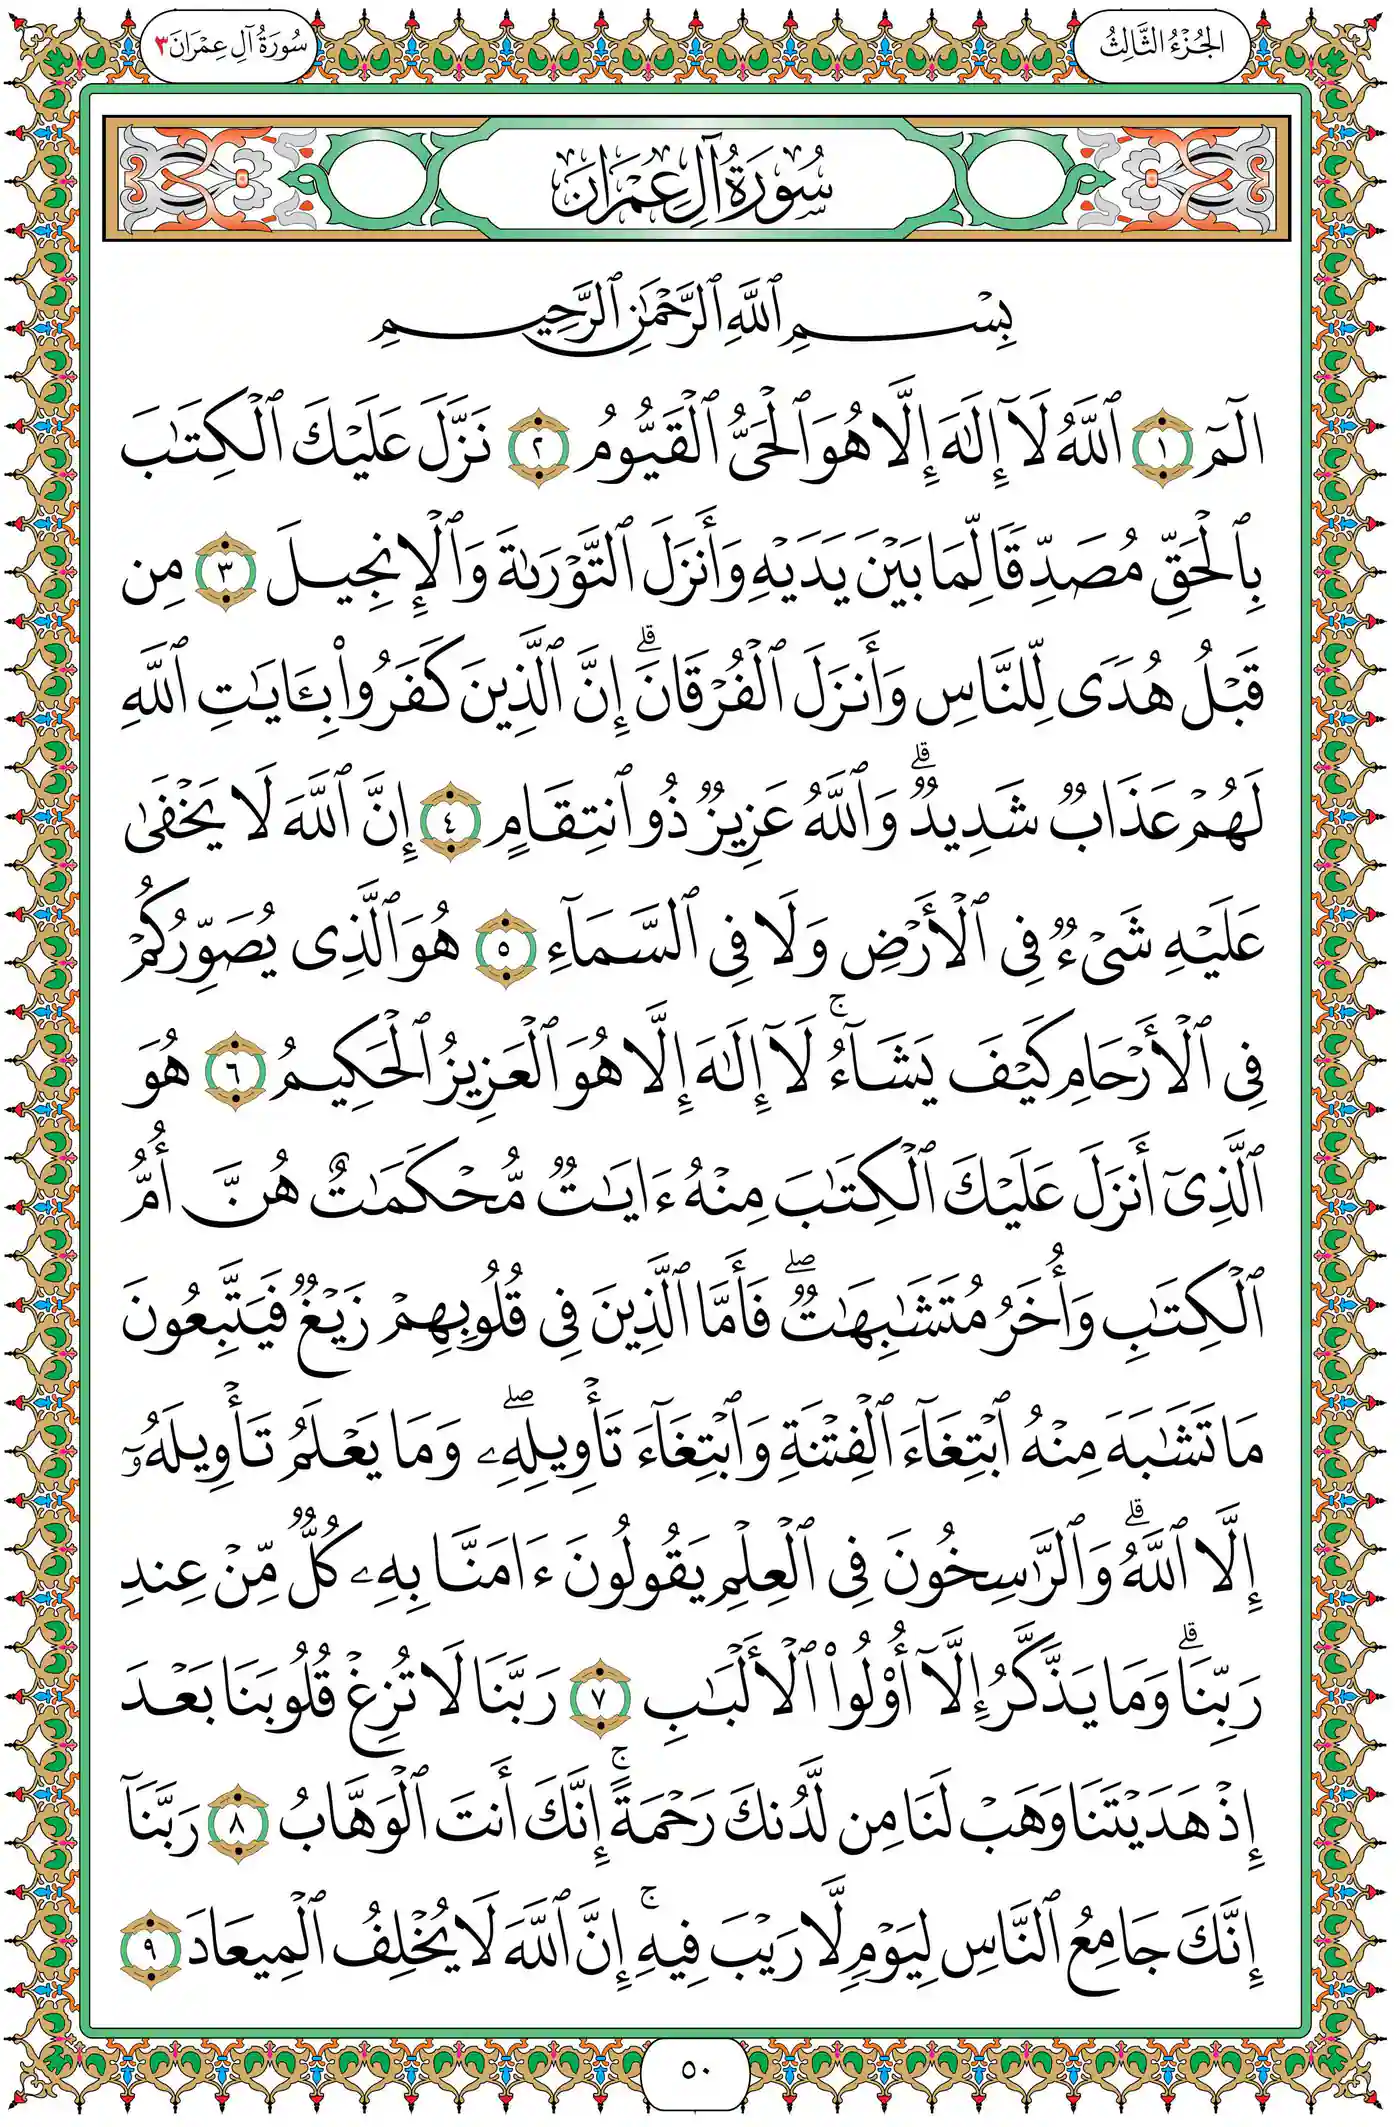 الجُزْءُ الثَّالِثُ
سُورَةُ آلِ عِمْرَانَ ٣
سُورَةُ آلِ عِمْرَانَ
بِسْمِ ٱللَّهِ ٱلرَّحْمَٰنِ ٱلرَّحِيمِ
الٓمٓ ١ ٱللَّهُ لَآ إِلَٰهَ إِلَّا هُوَ ٱلْحَىُّ ٱلْقَيُّومُ ٢ نَزَّلَ عَلَيْكَ ٱلْكِتَٰبَ
بِٱلْحَقِّ مُصَدِّقًا لِّمَا بَيْنَ يَدَيْهِ وَأَنزَلَ ٱلتَّوْرَىٰةَ وَٱلْإِنجِيلَ ٣ مِن
قَبْلُ هُدًى لِّلنَّاسِ وَأَنزَلَ ٱلْفُرْقَانَ ۗ إِنَّ ٱلَّذِينَ كَفَرُوا۟ بِـَٔايَٰتِ ٱللَّهِ
لَهُمْ عَذَابٌ شَدِيدٌ ۗ وَٱللَّهُ عَزِيزٌ ذُو ٱنتِقَامٍ ٤ إِنَّ ٱللَّهَ لَا يَخْفَىٰ
عَلَيْهِ شَىْءٌ فِى ٱلْأَرْضِ وَلَا فِى ٱلسَّمَآءِ ٥ هُوَ ٱلَّذِى يُصَوِّرُكُمْ
فِى ٱلْأَرْحَامِ كَيْفَ يَشَآءُ ۚ لَآ إِلَٰهَ إِلَّا هُوَ ٱلْعَزِيزُ ٱلْحَكِيمُ ٦ هُوَ
ٱلَّذِىٓ أَنزَلَ عَلَيْكَ ٱلْكِتَٰبَ مِنْهُ ءَايَٰتٌ مُّحْكَمَٰتٌ هُنَّ أُمُّ
ٱلْكِتَٰبِ وَأُخَرُ مُتَشَٰبِهَٰتٌ ۖ فَأَمَّا ٱلَّذِينَ فِى قُلُوبِهِمْ زَيْغٌ فَيَتَّبِعُونَ
مَا تَشَٰبَهَ مِنْهُ ٱبْتِغَآءَ ٱلْفِتْنَةِ وَٱبْتِغَآءَ تَأْوِيلِهِۦ ۖ وَمَا يَعْلَمُ تَأْوِيلَهُۥٓ
إِلَّا ٱللَّهُ ۗ وَٱلرَّٰسِخُونَ فِى ٱلْعِلْمِ يَقُولُونَ ءَامَنَّا بِهِۦ كُلٌّ مِّنْ عِندِ
رَبِّنَا ۗ وَمَا يَذَّكَّرُ إِلَّآ أُو۟لُوا۟ ٱلْأَلْبَٰبِ ٧ رَبَّنَا لَا تُزِغْ قُلُوبَنَا بَعْدَ
إِذْ هَدَيْتَنَا وَهَبْ لَنَا مِن لَّدُنكَ رَحْمَةً ۚ إِنَّكَ أَنتَ ٱلْوَهَّابُ ٨ رَبَّنَآ
إِنَّكَ جَامِعُ ٱلنَّاسِ لِيَوْمٍ لَّا رَيْبَ فِيهِ ۚ إِنَّ ٱللَّهَ لَا يُخْلِفُ ٱلْمِيعَادَ ٩
٥٠